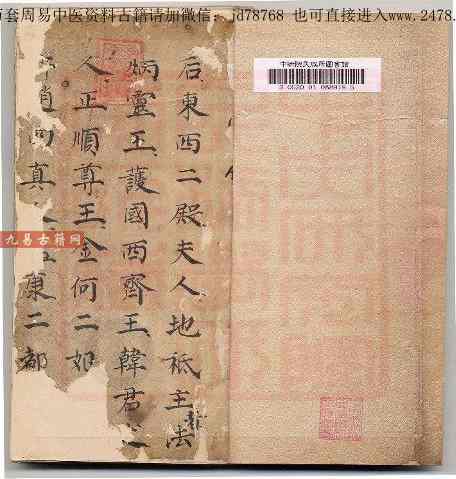 万套周易中医资料古籍请加微信：jd78768 也可直接进入www.2478.
中研院民族所圖書館
3 0520 01 068919 5
后東西二殿夫人地祇主法
炳靈王護國西齊王韓君
人正順尊王金何二如
真康二都
九易古籍网